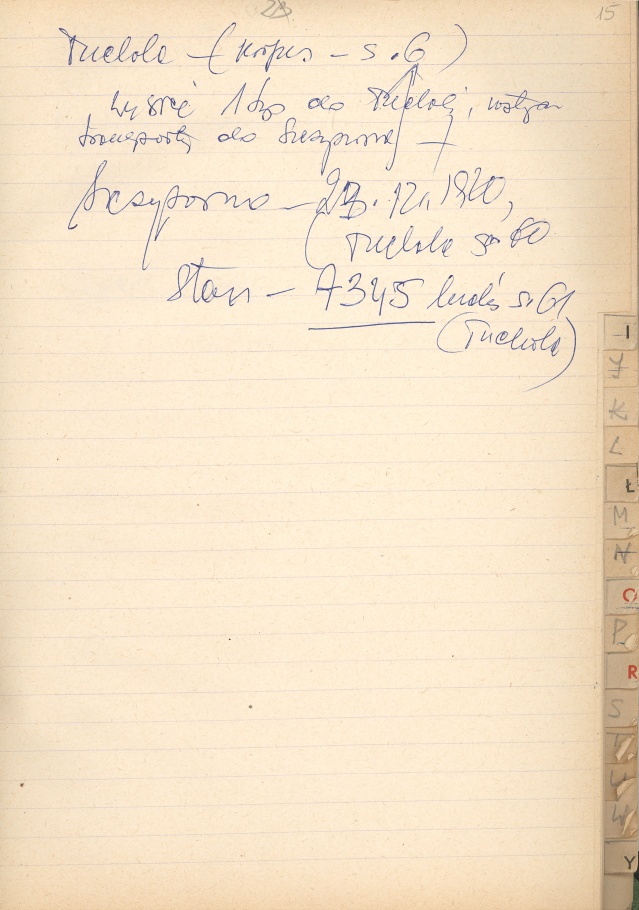 15
Tuchola – (korpus – s. 6)
wysłać 1 tys do Tucholi, wstrzym
transporty do Szczypiorna
Szczypiorno – 23. 12. 1920,
(Tuchola s. 60
Stan – 7345 ludzi s. 61
(Tuchola)
I
J
K
L
Ł
M
N
O
P
R
S
T
U
W
Y